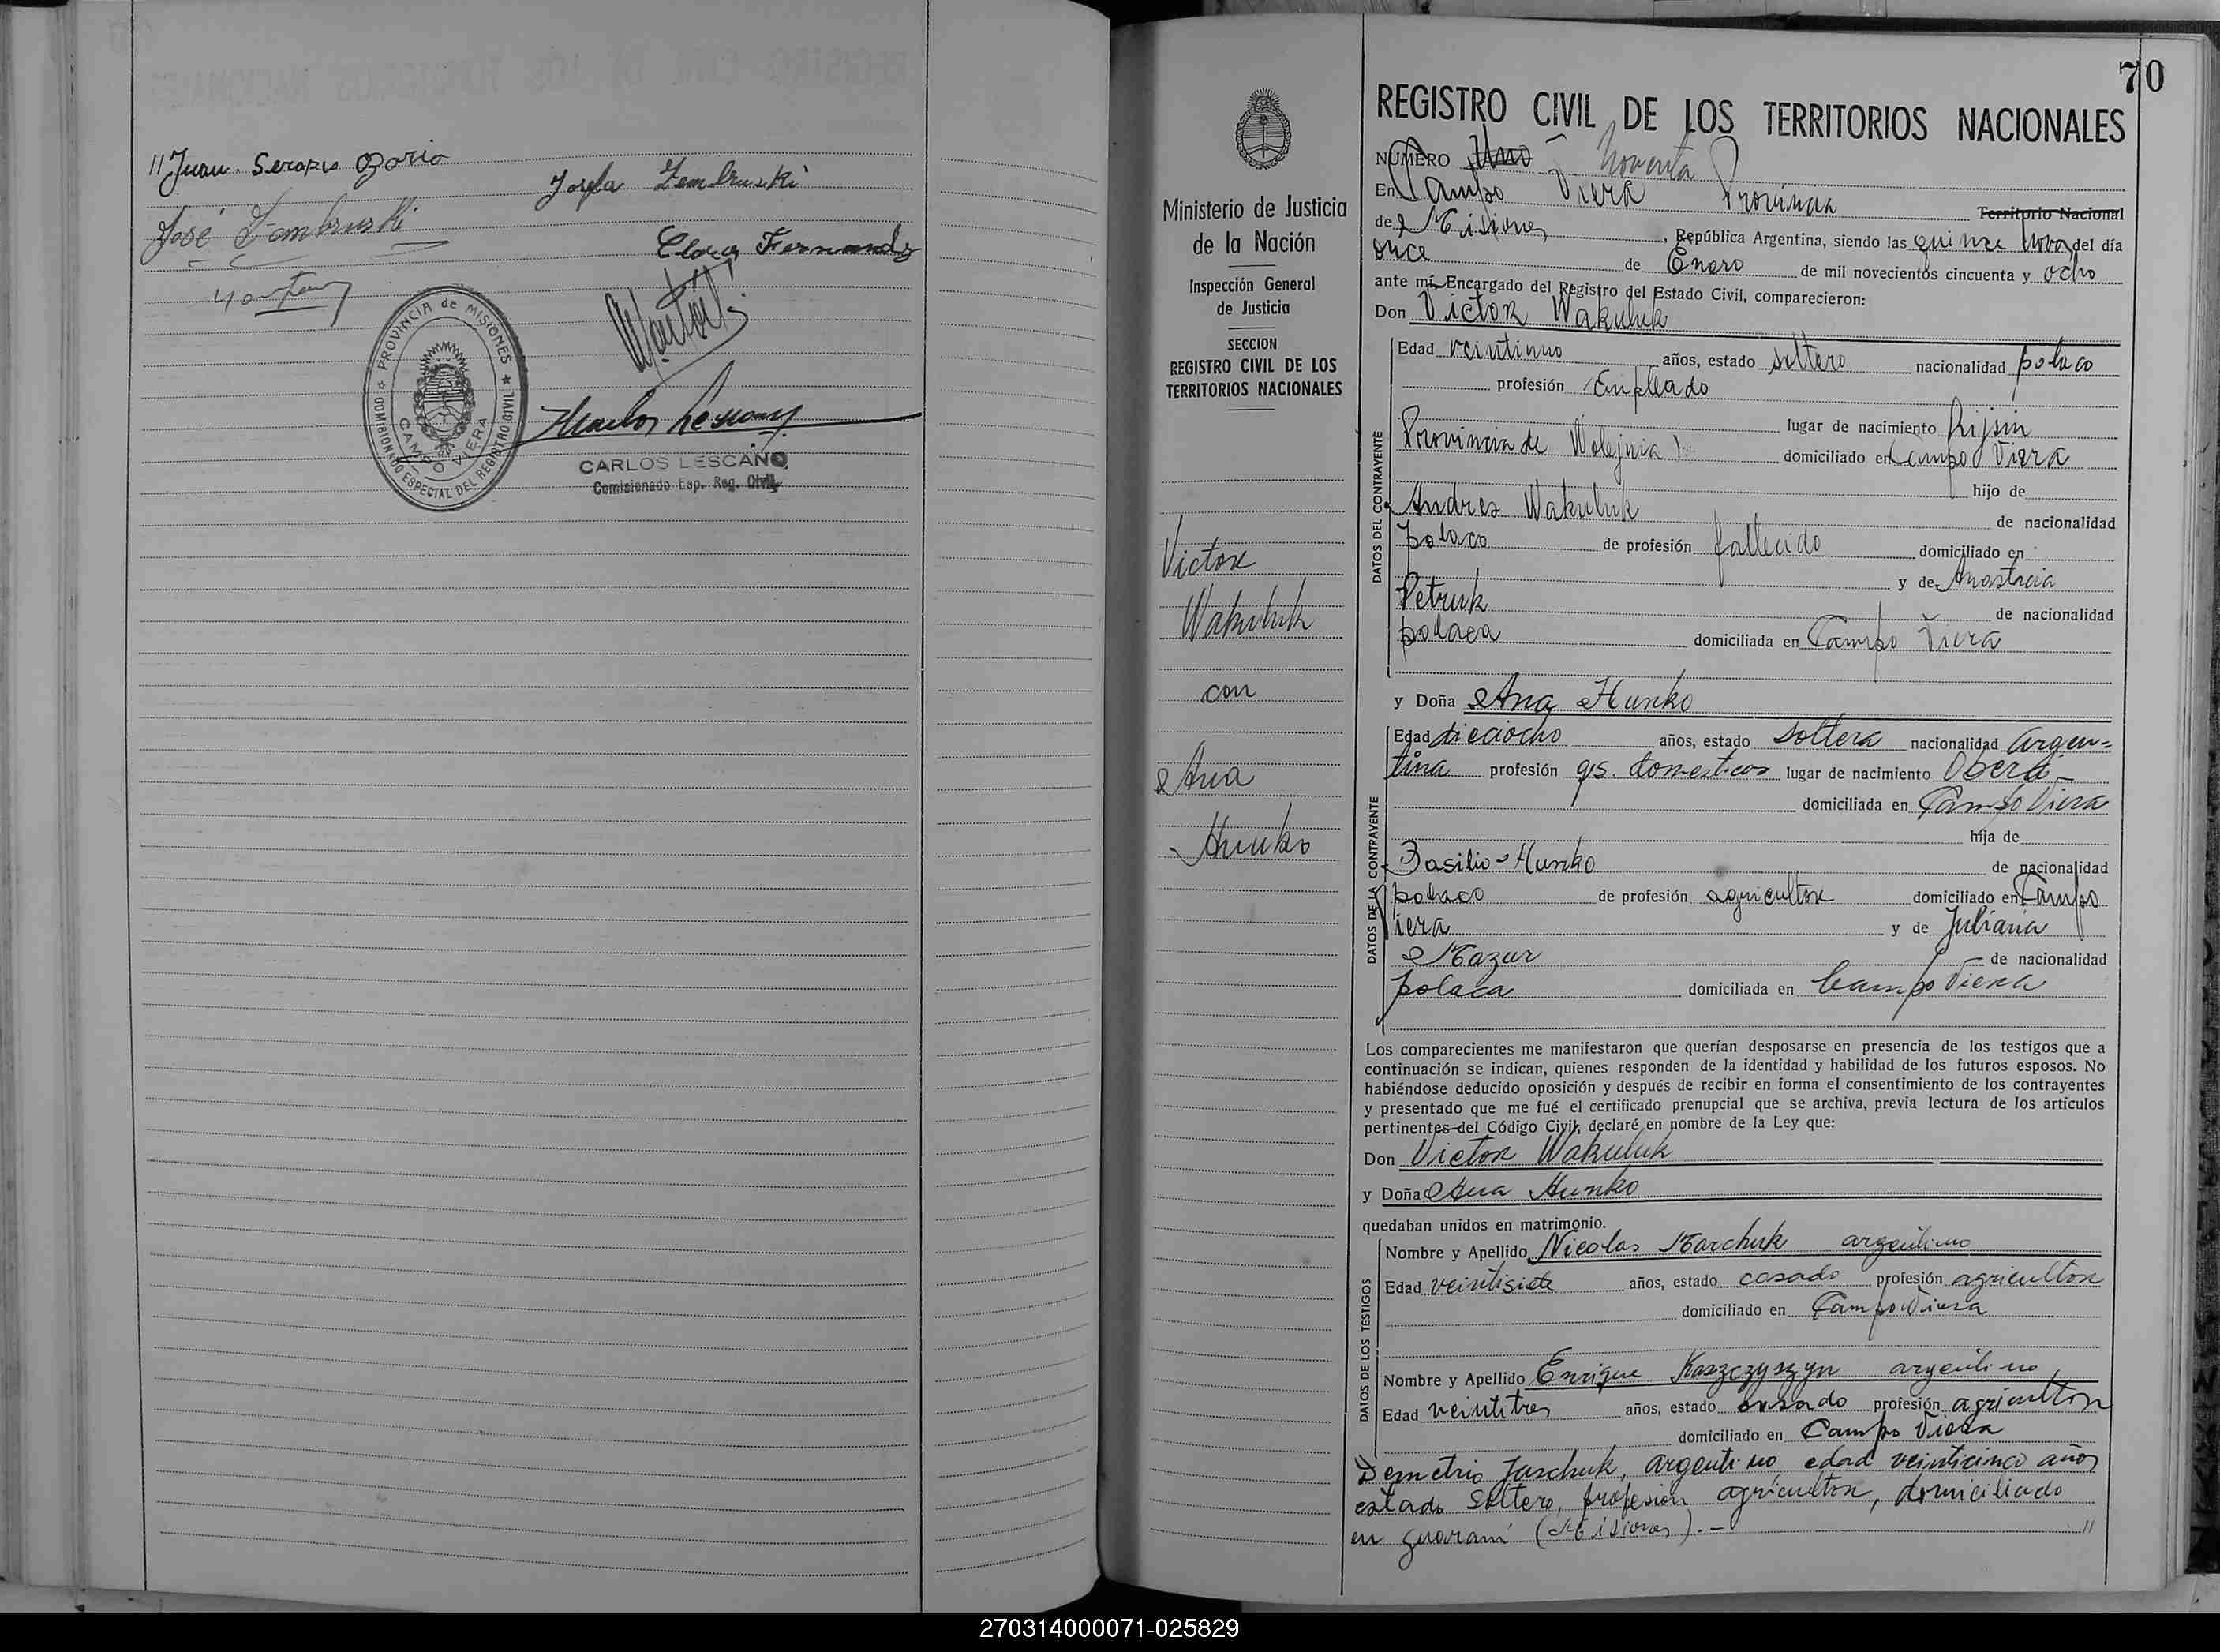 // Juan Serapio Ozorio
Josefa Zembruski
José Zembruski
Clara Fernandez
PROVINCIA de MISIONES
COMISIONADO ESPECIAL DEL REGISTRO CIVIL
CAMPO VIERA
CARLOS LESCANO
Comisionado Esp. Reg. Civil
Ministerio de Justicia
de la Nación
Inspección General
de Justicia
SECCION
REGISTRO CIVIL DE LOS
TERRITORIOS NACIONALES
Victor
Wakuluk
con
Ana
Hunko
70
REGISTRO CIVIL DE LOS TERRITORIOS NACIONALES
NÚMERO Uno - Noventa
En Campo Viera Provincia Territorio Nacional
de Misiones, República Argentina, siendo las quince horas del día
once de Enero de mil novecientos cincuenta y ocho
ante mí, Encargado del Registro del Estado Civil, comparecieron:
Don Victor Wakuluk
DATOS DEL CONTRAYENTE
Edad veintiuno años, estado soltero nacionalidad polaco
profesión Empleado
lugar de nacimiento Rijsin
Provincia de Wolejnia domiciliado en Campo Viera
hijo de
Andres Wakuluk de nacionalidad
polaco de profesión fallecido domiciliado en
y de Anastacia
Petruk de nacionalidad
polaca domiciliada en Campo Viera
y Doña Ana Hunko
DATOS DE LA CONTRAYENTE
Edad dieciocho años, estado soltera nacionalidad argen=
tina profesión qs. domesticos lugar de nacimiento Oberá -
domiciliada en Campo Viera
hija de
Basilio Hunko de nacionalidad
polaco de profesión agricultor domiciliado en Campo
Viera y de Juliana
Mazur de nacionalidad
polaca domiciliada en Campo Viera
Los comparecientes me manifestaron que querían desposarse en presencia de los testigos que a
continuación se indican, quienes responden de la identidad y habilidad de los futuros esposos. No
habiéndose deducido oposición y después de recibir en forma el consentimiento de los contrayentes
y presentado que me fué el certificado prenupcial que se archiva, previa lectura de los artículos
pertinentes del Código Civil, declaré en nombre de la Ley que:
Don Victor Wakuluk
y Doña Ana Hunko
quedaban unidos en matrimonio.
DATOS DE LOS TESTIGOS
Nombre y Apellido Nicolas Marchuk argentino
Edad veintisiete años, estado casado profesión agricultor
domiciliado en Campo Viera
Nombre y Apellido Enrique Kaszczyszyn argentino
Edad veintitres años, estado casado profesión agricultor
domiciliado en Campo Viera
Demetrio Juschuk, argentino edad veinticinco años
estado soltero, profesion agricultor, domiciliado
en guarani (Misiones). - //
270314000071-025829